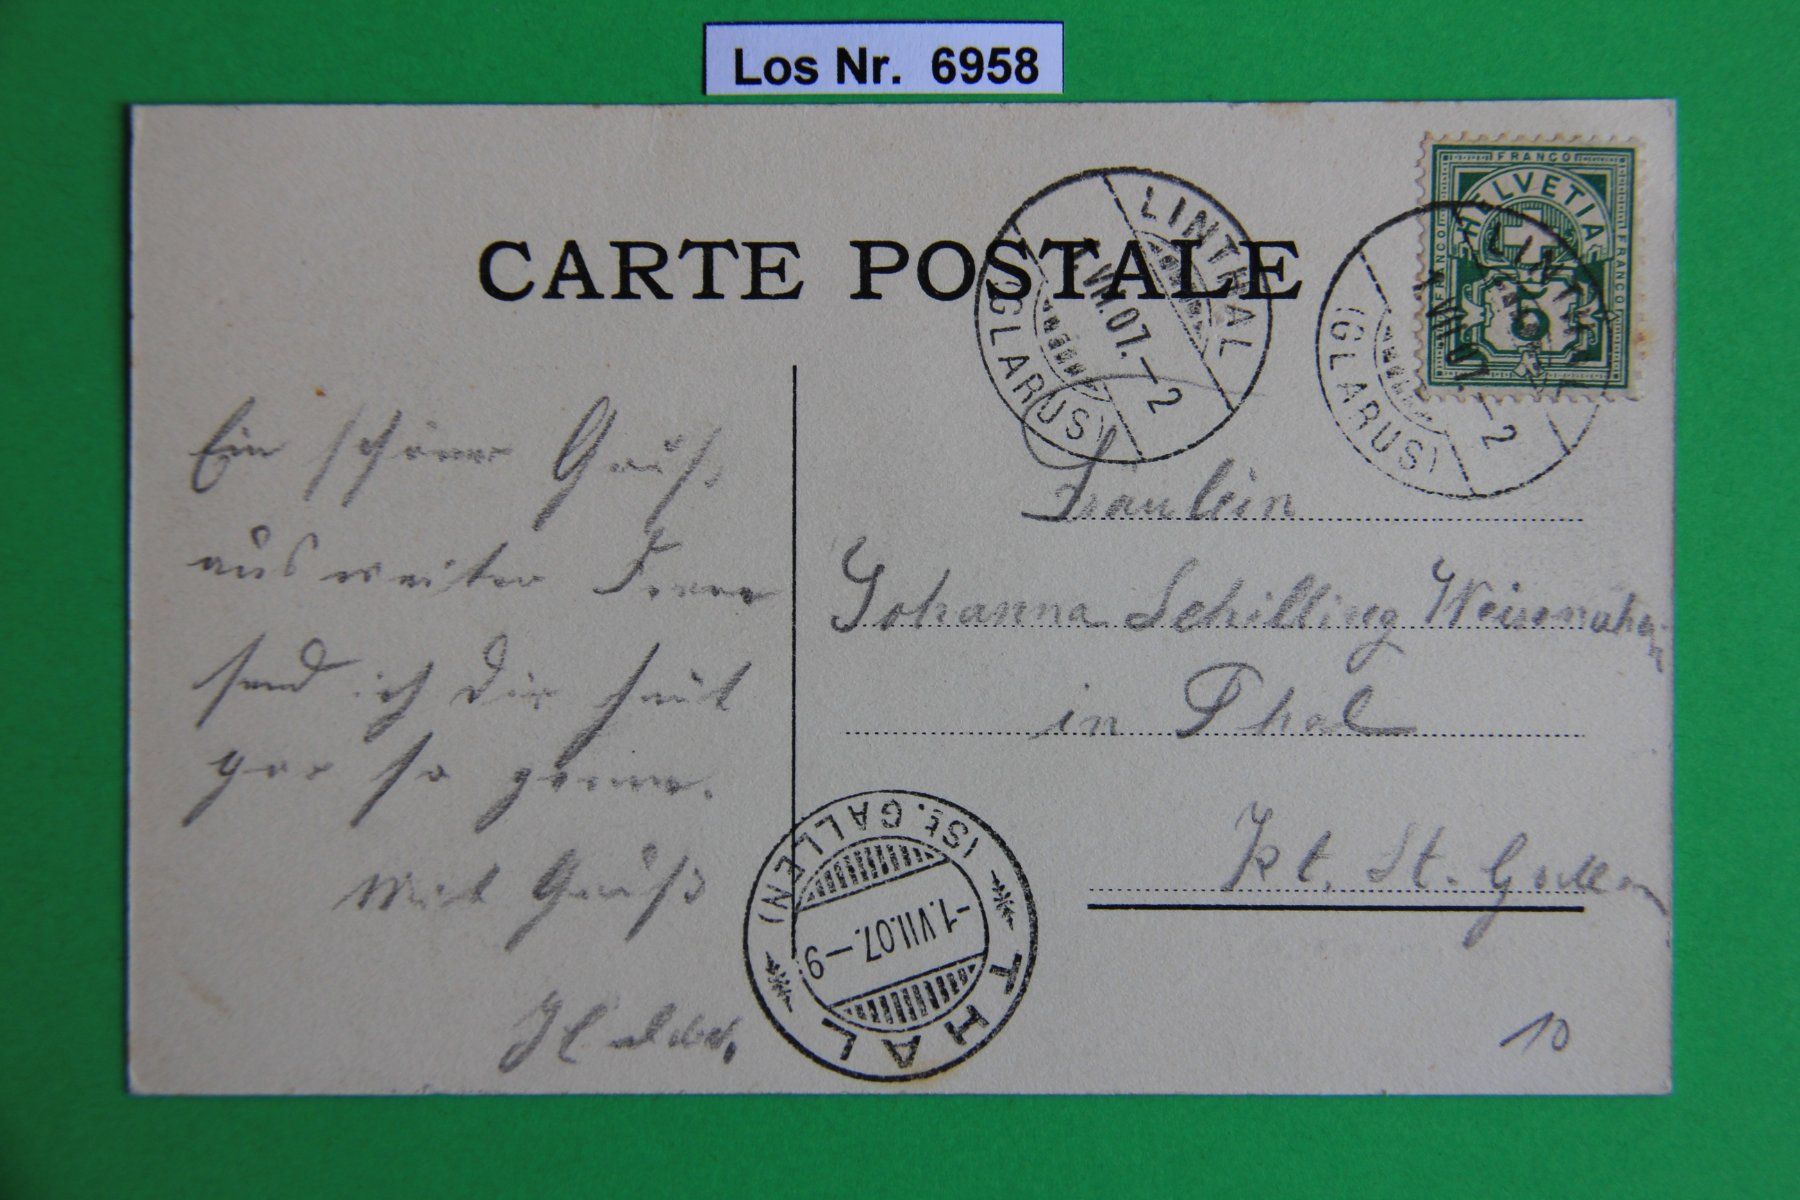 Los Nr. 6958
CARTE POSTALE
FRANCO
HELVETIA
FRANCO
FRANCO
5
LINTHAL
1.VII.07.–2
(GLARUS)
LINTHAL
1.VII.07.–2
(GLARUS)
Ein schöner Gruß
aus weiter Ferne
send ich dir
gar so gerne.
Mit Gruß
Fräulein
Johanna Schilling
in Thal
Kt. St. Gallen
THAL
(St. GALLEN)
-1.VII.07.–9
10